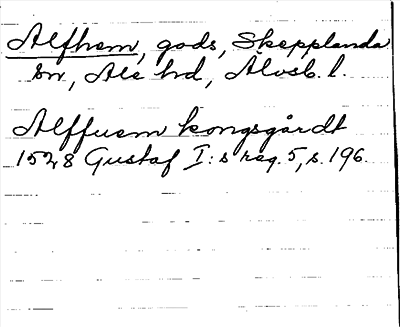 Alfhem, gods, Skepplanda
sn, Ale hd, Älvsb. l.
Alffuem kongsgårdt
1528 Gustaf I:s reg. 5, s. 196.